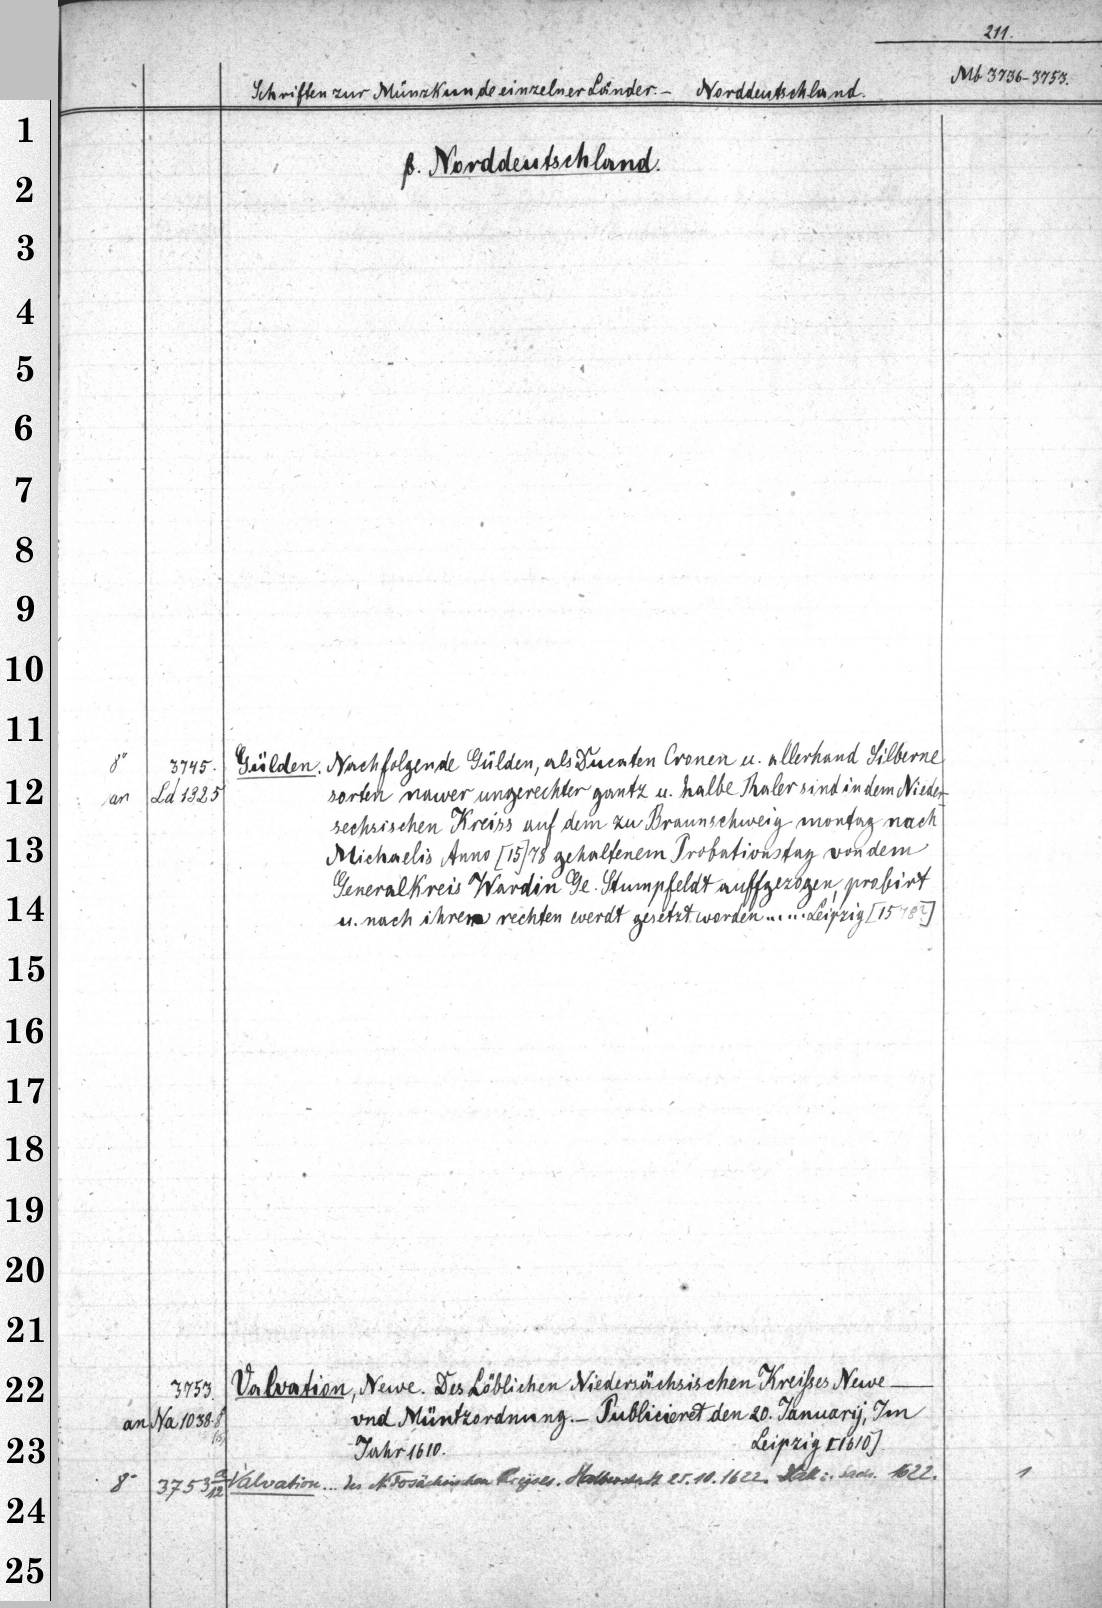 211.
Mb 3736-3753.
Schriften zur Münzkunde einzelner Länder. – Norddeutschland.
β. Norddeutschland.
8° 3745. Gülden. Nachfolgende Gülden, als Ducaten Cronen u. allerhand Silberne
an Ld 1325 sorten nawer ungerechter gantz u. halbe Thaler sind in dem Nieder-
sechsischen Kreiss auf dem zu Braunschweig montag nach
Michaelis Anno [15]78 gehaltenem Probationstag von dem
Generalkreis Wardin Ge. Stumpfeldt auffgezogen, probirt
u. nach ihrem rechten werdt gesetzt worden ..... Leipzig [1578?]
3753 Valvation, Newe. Des Löblichen Niedersächsischen Kreisses Newe —
an Na 1038.8° vnd Müntzordnung. – Publicieret den 20. Januarij, Im
Jahr 1610. Leipzig [1610]
8° 3753 a/12 Valvation ... des Kreyses. 25.10.1622. 1622. 1
1
2
3
4
5
6
7
8
9
10
11
12
13
14
15
16
17
18
19
20
21
22
23
24
25